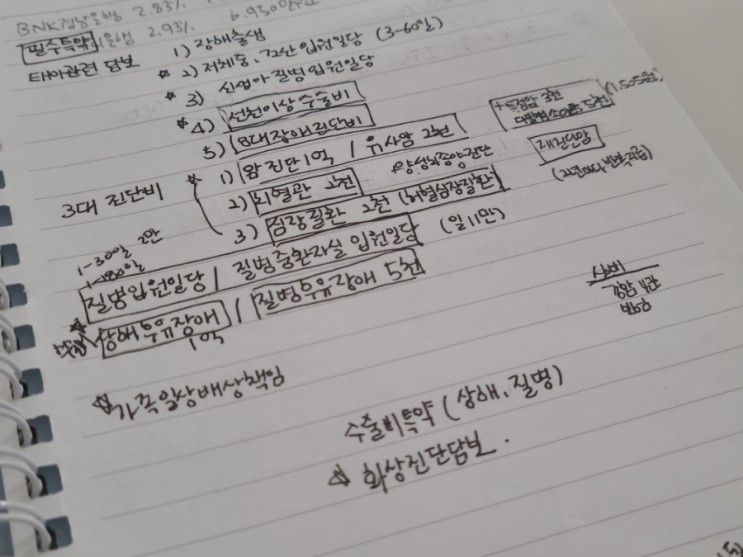 BNK경남은행 2.83%
은행 2.93% 6.950만
필수특약 1) 장해출생
태아관련 담보 ☆ 2) 저체중, 입원일당 (3-60일)
☆ 3) 신생아 질병입원일당
☆ 4) 선천이상수술비
5) 8대장애진단비
3대 진단비 ☆ 1) 암진단1억 / 유사암 2천
+특정암 3천
+양성뇌종양진단
재진단암
2) 뇌혈관 2천
3) 심장질환 2천 (허혈심장질환)
1-30일 2만
1-180일
질병입원일당 / 질병중환자실 입원일당 (일11만)
☆ 상해후유장해 / 질병후유장애 5천
1억
☆ 가족일상배상책임
수술비특약 (상해, 질병)
☆ 화상진단담보.